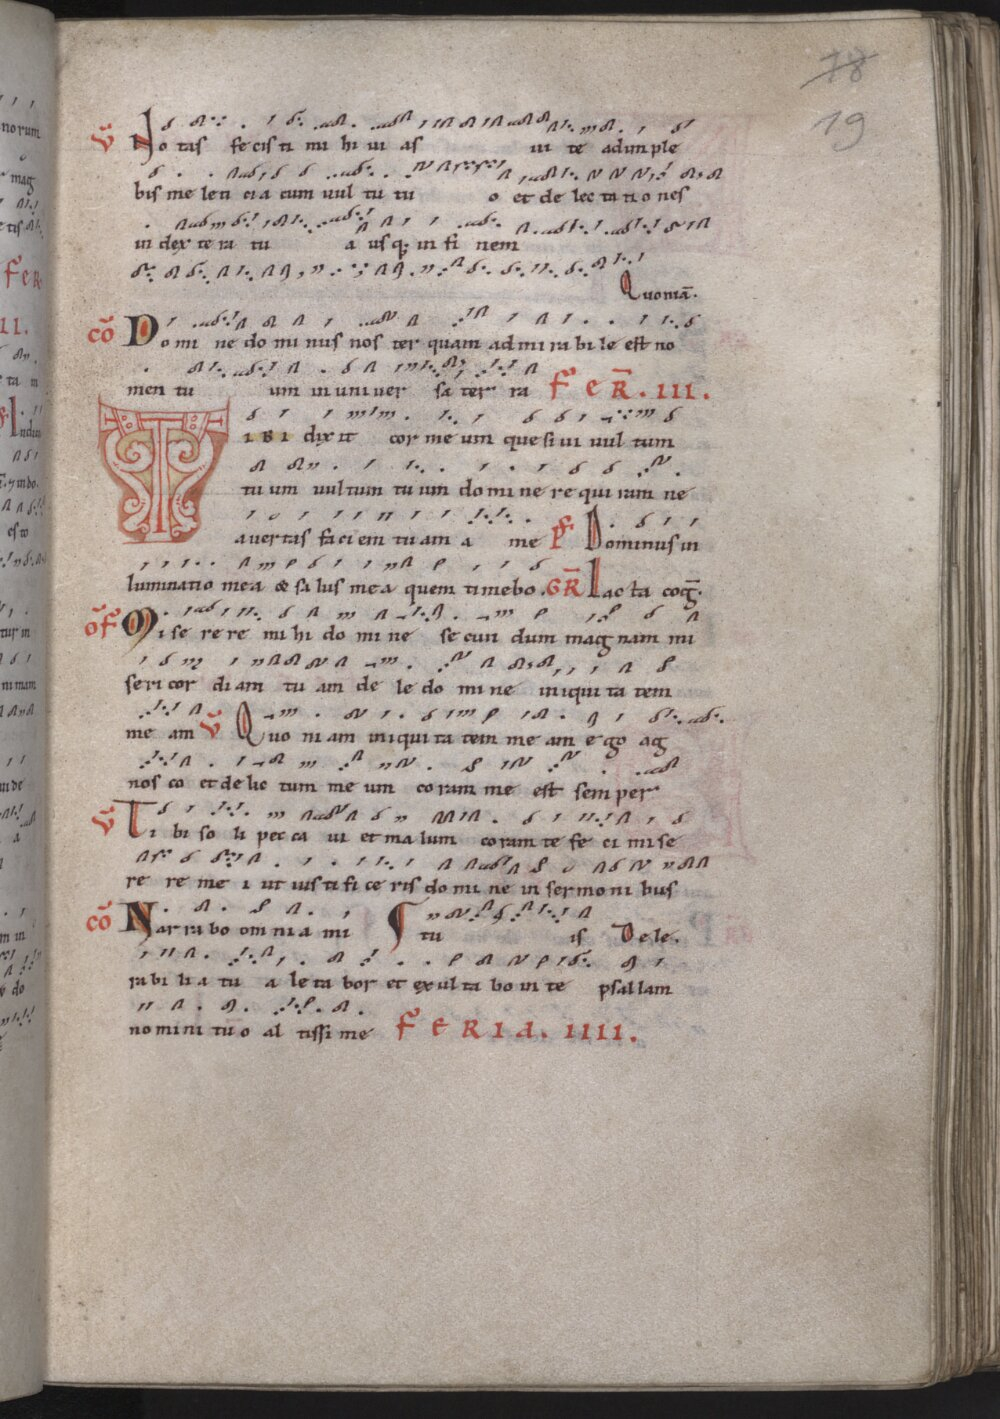 18
19
V̄ Notas fecisti mihi vias vite adimple
bis me leticia cum vultu tuo et delectationes
in dextera tua usq; in finem
Quoniā.
cō Domine dominus noster quam admirabile est no
men tuum in universa terra FER̄.III.
TIBI dixit cor meum quesivi vultum
tuum vultum tuum domine requiram ne
avertas faciem tuam a me P̄ Dominus in
luminatio mea & salus mea quem timebo. GR̄ Iacta cog̅.
OF̄ Miserere mihi domine secundum magnam mi
sericordiam tuam dele domine iniquitatem
meam V̄ Quoniam iniquitatem meam ego ag
nosco et delictum meum coram me est semper
V̄ Tibi soli peccavi et malum coram te feci mise
rere mei ut iustificeris domine in sermonibus
cō Narrabo omnia mi tuis Dele.
rabilia tua letabor et exultabo in te psallam
nomini tuo altissime FERIA.IIII.